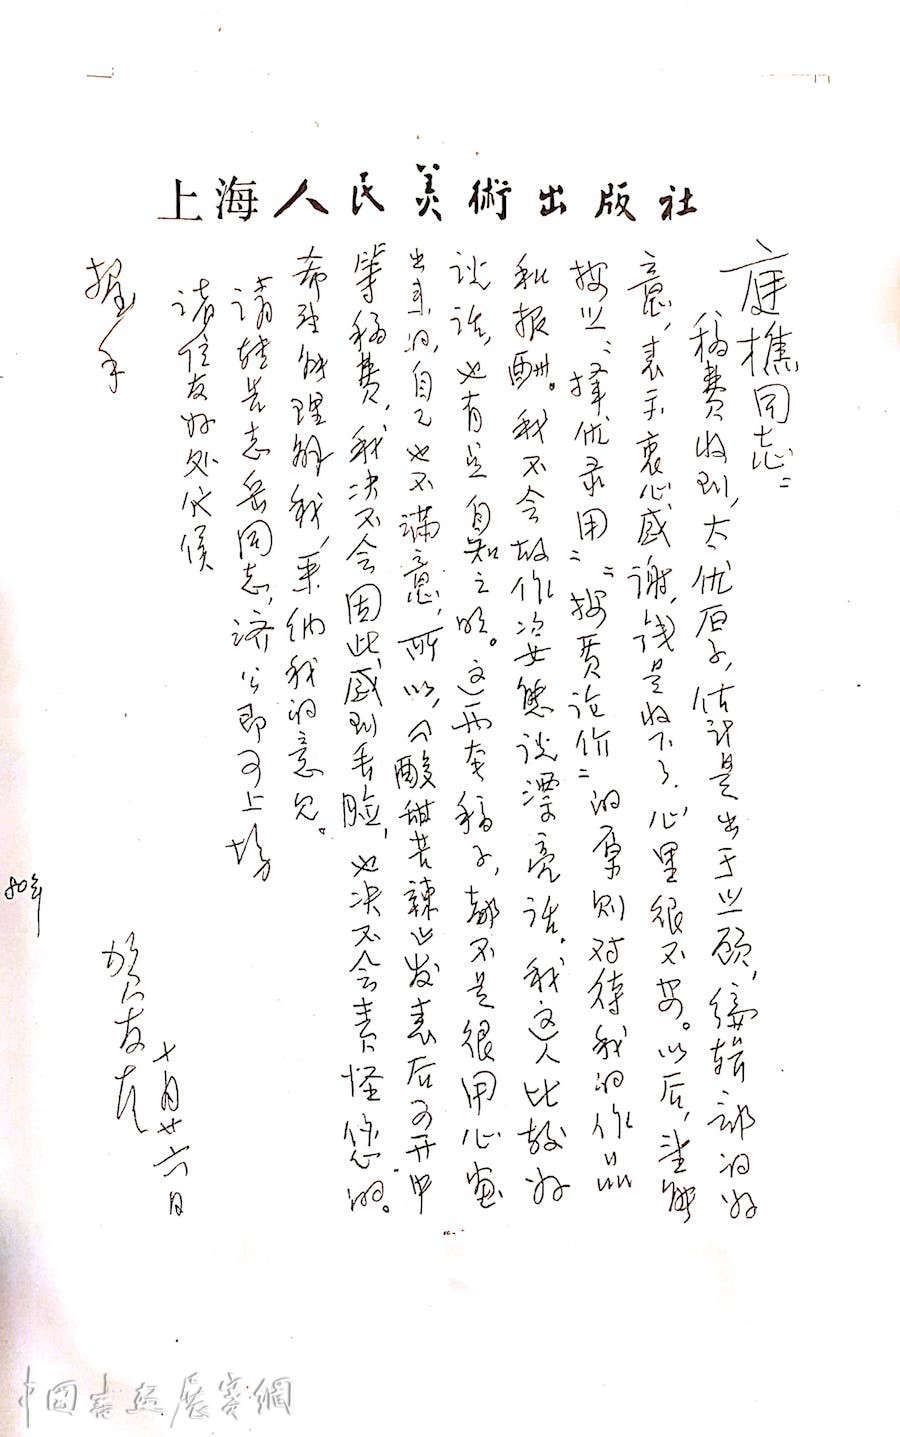 上海人民美術出版社
庭樵同志：
稿费收到，太优厚了，估计是出于照顾，编辑部的好
意，表示衷心感谢，钱是收下了，心里很不安。以后，望能
按照“择优录用”“按质论价”的原则对待我的作品
和报酬。我不会故作姿态说漂亮话。我这人比较好
谈话，也有点自知之明。这两本稿子，都不是很用心画
出来的，自己也不满意，所以，《酸甜苦辣》发表后可开中
等稿费，我决不会因此感到丢脸，也决不会责怪您的。
希望能理解我，采纳我的意见。
请转告志岳同志，济公即可上场
诸位友好处代候
握手
贺友直
十月廿六日
80年
中国书画展赛網